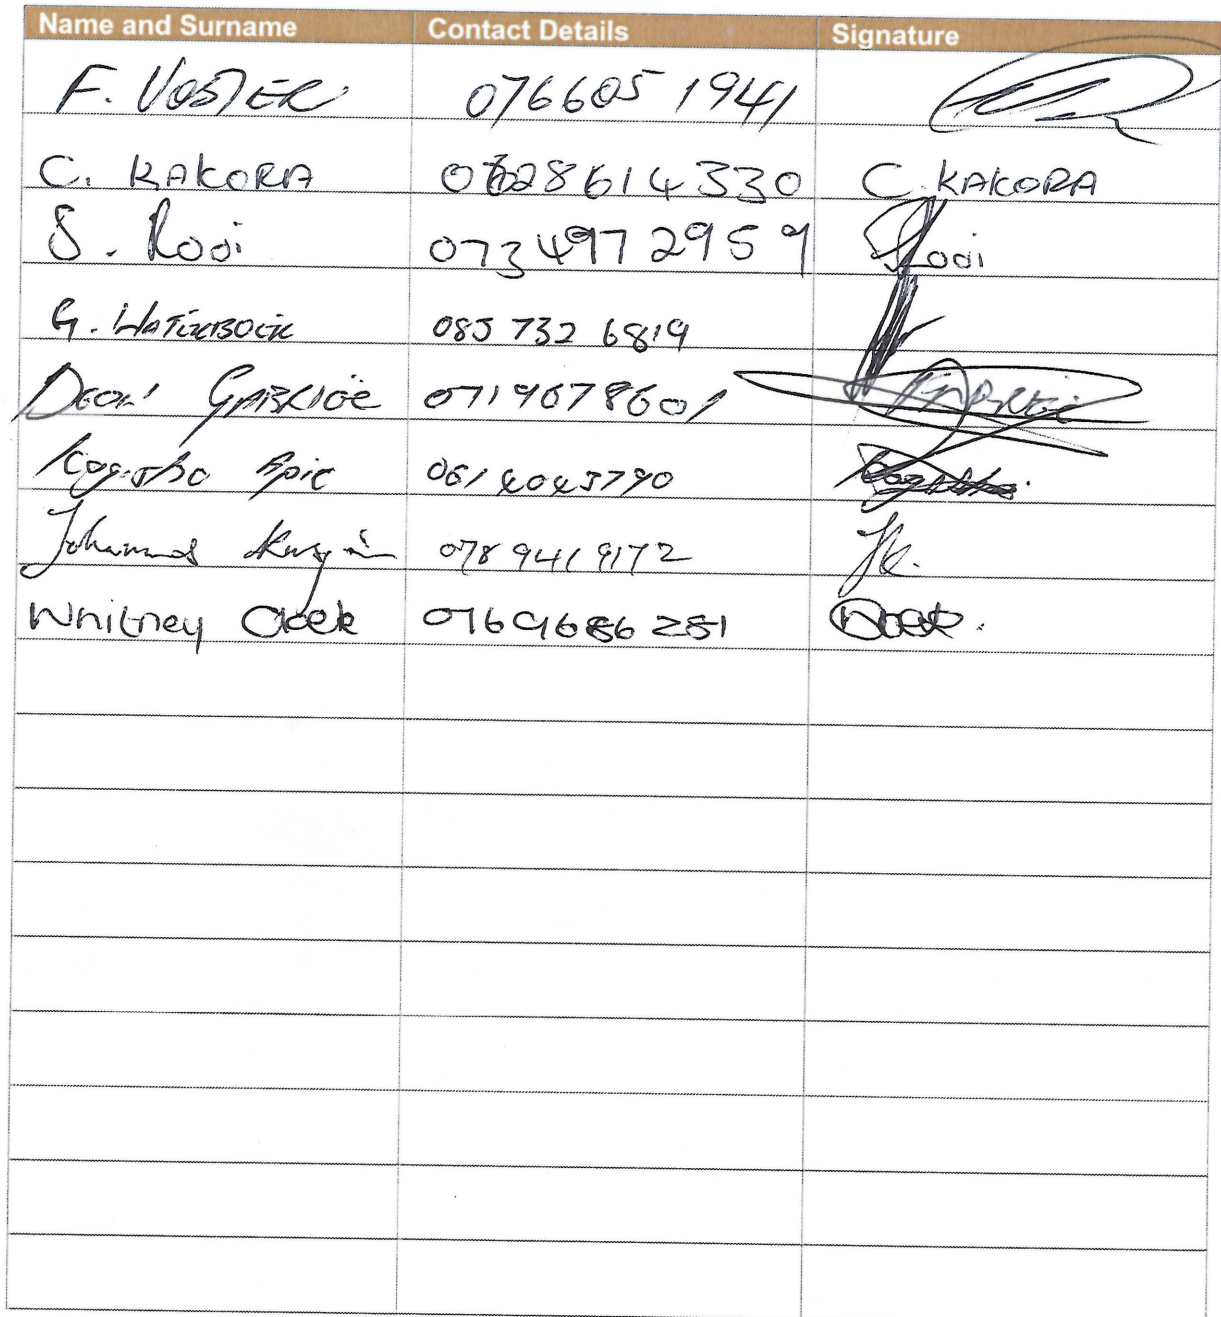 Name and Surname Contact Details Signature
F. VOSTER 076605 1941
C. KAKORA 0628614330 C. KAKORA
S. Rooi 073 497 2959 Rooi
G. 083 732 6819
Deon 0719678601
Kagisho Apie 0614043790
Johannes 0789419172 JK.
Whitney Cloek 0769686281